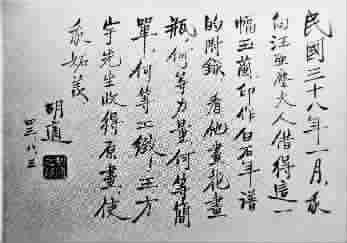 民國三十八年一月，我
向汪亞塵夫人借得這一
幅玉蘭印作白石年譜
的附錄。看他畫花畫
瓶，何等力量，何等簡
單，何等工緻！王方
宇先生收得原畫，使
我妬羨。
胡適
四三、八、三